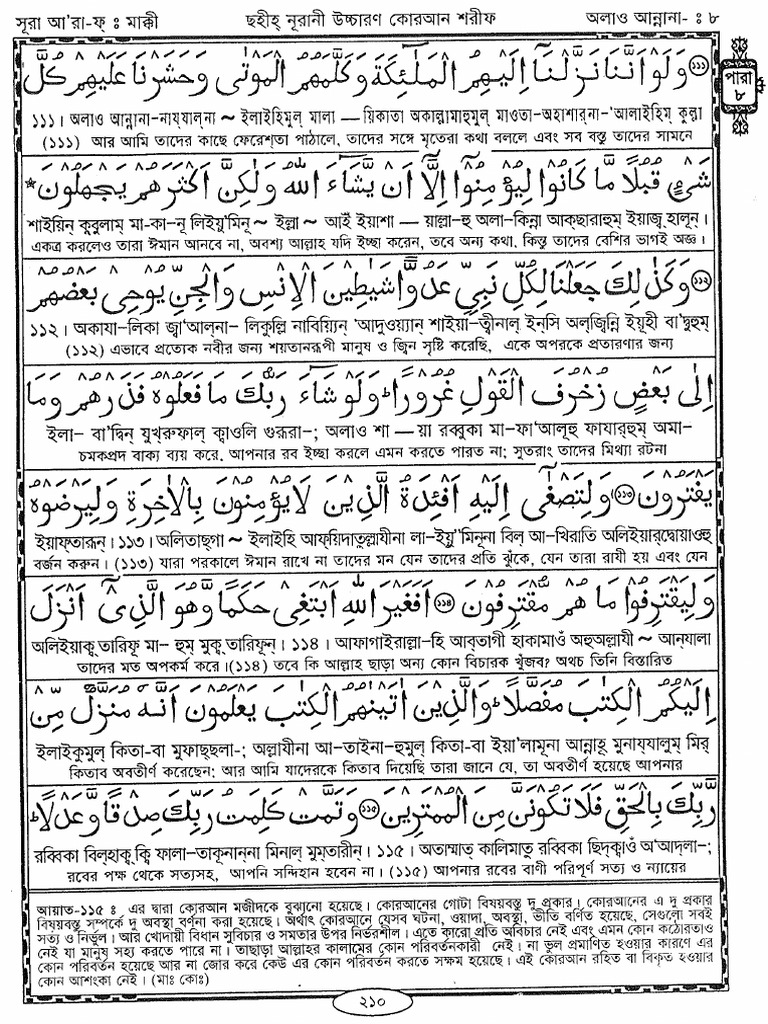 সূরা আ'রা-ফ্ : মাক্কী
ছহীহ্ নূরানী উচ্চারণ কোরআন শরীফ
অলাও আন্নানা- : ৮
পারা
৮
﴿১১১﴾ وَلَوْ اَنَّنَا نَزَّلْنَاۤ اِلَيْهِمُ الْمَلٰٓئِكَةَ وَكَلَّمَهُمُ الْمَوْتٰى وَحَشَرْنَا عَلَيْهِمْ كُلَّ
১১১। অলাও আন্নানা-নায্যাল্না ~ ইলাইহিমুল্ মালা — য়িকাতা অকাল্লামাহুমুল্ মাওতা-অহাশার্না-'আলাইহিম্ কুল্লা
(১১১) আর আমি তাদের কাছে ফেরেশ্তা পাঠালে, তাদের সঙ্গে মৃতেরা কথা বললে এবং সব বস্তু তাদের সামনে
شَىْءٍ قُبُلًا مَّا كَانُوْا لِيُؤْمِنُوْۤا اِلَّاۤ اَنْ يَّشَآءَ اللّٰهُ وَلٰكِنَّ اَكْثَرَهُمْ يَجْهَلُوْنَ*
শাইয়িন্ ক্বুবুলাম্ মা-কা-নূ লিইয়ু'মিনূ ~ ইল্লা ~ আইঁ ইয়াশা — য়াল্লা-হু অলা-কিন্না আক্ছারাহুম্ ইয়াজ্ব্হালূন্।
একত্র করলেও তারা ঈমান আনবে না, অবশ্য আল্লাহ যদি ইচ্ছা করেন, তবে অন্য কথা, কিন্তু তাদের বেশির ভাগই অজ্ঞ।
﴿১১২﴾ وَكَذٰلِكَ جَعَلْنَا لِكُلِّ نَبِىٍّ عَدُوًّا شَيٰطِيْنَ الْاِنْسِ وَالْجِنِّ يُوْحِىْ بَعْضُهُمْ
১১২। অকাযা-লিকা জ্বা'আল্না- লিকুল্লি নাবিয়্যিন্ 'আদুওয়্যান্ শাইয়া-ত্বীনাল্ ইন্সি অল্জ্বিন্নি ইয়ূহী বা'দ্বুহুম্
(১১২) এভাবে প্রত্যেক নবীর জন্য শয়তানরূপী মানুষ ও জ্বিন সৃষ্টি করেছি, একে অপরকে প্রতারণার জন্য
اِلٰى بَعْضٍ زُخْرُفَ الْقَوْلِ غُرُوْرًا ؕ وَلَوْ شَآءَ رَبُّكَ مَا فَعَلُوْهُ فَذَرْهُمْ وَمَا
ইলা- বা'দ্বিন্ যুখ্রুফাল্ ক্বাওলি গুরূরা-; অলাও শা — য়া রব্বুকা মা-ফা'আলূহু ফাযার্হুম্ অমা-
চমকপ্রদ বাক্য ব্যয় করে, আপনার রব ইচ্ছা করলে এমন করতে পারত না; সুতরাং তাদের মিথ্যা রটনা
يَفْتَرُوْنَ ﴿১১৩﴾ وَلِتَصْغٰۤى اِلَيْهِ اَفْئِدَةُ الَّذِيْنَ لَا يُؤْمِنُوْنَ بِالْاٰخِرَةِ وَلِيَرْضَوْهُ
ইয়াফ্তারূন্। ১১৩। অলিতাছ্গা ~ ইলাইহি আফ্য়িদাতুল্লাযীনা লা-ইয়ু'মিনূনা বিল্ আ-খিরাতি অলিইয়ার্দ্বোয়াওহু
বর্জন করুন। (১১৩) যারা পরকালে ঈমান রাখে না তাদের মন যেন তাদের প্রতি ঝুঁকে, যেন তারা রাযী হয় এবং যেন
وَلِيَقْتَرِفُوْا مَا هُمْ مُّقْتَرِفُوْنَ ﴿১১৪﴾ اَفَغَيْرَ اللّٰهِ اَبْتَغِىْ حَكَمًا وَّهُوَ الَّذِىْۤ اَنْزَلَ
অলিইয়াক্ব্তারিফূ মা- হুম্ মুক্ব্তারিফূন্। ১১৪। আফাগাইরাল্লা-হি আব্তাগী হাকামাওঁ অহুঅল্লাযী ~ আন্যালা
তাদের মত অপকর্ম করে।(১১৪) তবে কি আল্লাহ ছাড়া অন্য কোন বিচারক খুঁজব? অথচ তিনি বিস্তারিত
اِلَيْكُمُ الْكِتٰبَ مُفَصَّلًا ؕ وَالَّذِيْنَ اٰتَيْنٰهُمُ الْكِتٰبَ يَعْلَمُوْنَ اَنَّهٗ مُنَزَّلٌ مِّنْ
ইলাইকুমুল্ কিতা-বা মুফাছ্ছলা-; অল্লাযীনা আ-তাইনা-হুমুল্ কিতা-বা ইয়া'লামূনা আন্নাহূ মুনায্যালুম্ মির্
কিতাব অবতীর্ণ করেছেন; আর আমি যাদেরকে কিতাব দিয়েছি তারা জানে যে, তা অবতীর্ণ হয়েছে আপনার
رَّبِّكَ بِالْحَقِّ فَلَا تَكُوْنَنَّ مِنَ الْمُمْتَرِيْنَ ﴿১১৫﴾ وَتَمَّتْ كَلِمَتُ رَبِّكَ صِدْقًا وَّعَدْلًا ؕ
রব্বিকা বিল্হাক্ব্ক্বি ফালা-তাকূনান্না মিনাল্ মুম্তারীন্। ১১৫। অতাম্মাত্ কালিমাতু রব্বিকা ছিদ্ক্বাওঁ অ'আদ্লা-;
রবের পক্ষ থেকে সত্যসহ, আপনি সন্দিহান হবেন না। (১১৫) আপনার রবের বাণী পরিপূর্ণ সত্য ও ন্যায়ের
আয়াত-১১৫ : এর দ্বারা কোরআন মজীদকে বুঝানো হয়েছে। কোরআনের গোটা বিষয়বস্তু দু প্রকার। কোরআনের এ দু প্রকার
বিষয়বস্তু সম্পর্কে দু অবস্থা বর্ণনা করা হয়েছে। অর্থাৎ কোরআনে যেসব ঘটনা, ওয়াদা, অবস্থা, ভীতি বর্ণিত হয়েছে, সেগুলো সবই
সত্য ও নির্ভুল। আর খোদায়ী বিধান সুবিচার ও সমতার উপর নির্ভরশীল। এতে কারো প্রতি অবিচার নেই এবং এমন কোন কঠোরতাও
নেই যা মানুষ সহ্য করতে পারে না। তাছাড়া আল্লাহর কালামের কোন পরিবর্তনকারী নেই। না ভুল প্রমাণিত হওয়ার কারণে এর
কোন পরিবর্তন হয়েছে আর না জোর করে কেউ এর কোন পরিবর্তন করতে সক্ষম হয়েছে। এই কোরআন রহিত বা বিকৃত হওয়ার
কোন আশংকা নেই। (মাঃ কোঃ)
২১০